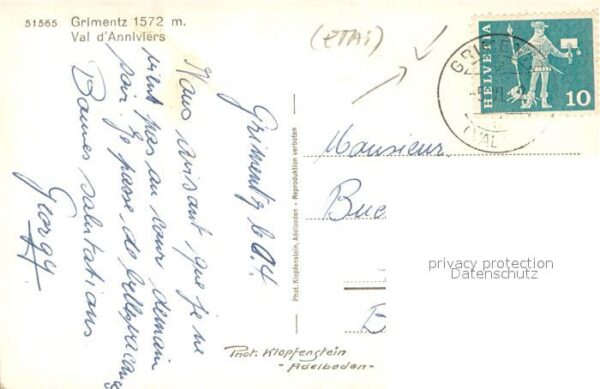 51565 Grimentz 1572 m.
Val d'Anniviers
(ETAI)
HELVETIA
10
GRIMENTZ
(VAL
Grimentz le 0.4
Nous avisant que je ne
vient pas au cour demain
soir. Je passe de belles vacances
Bonnes salutations
Georgy
Phot. Klopfenstein, Adelboden - Reproduktion verboten
Monsieur
Bue
E
privacy protection
Datenschutz
Phot. Klopfenstein
- Adelboden -